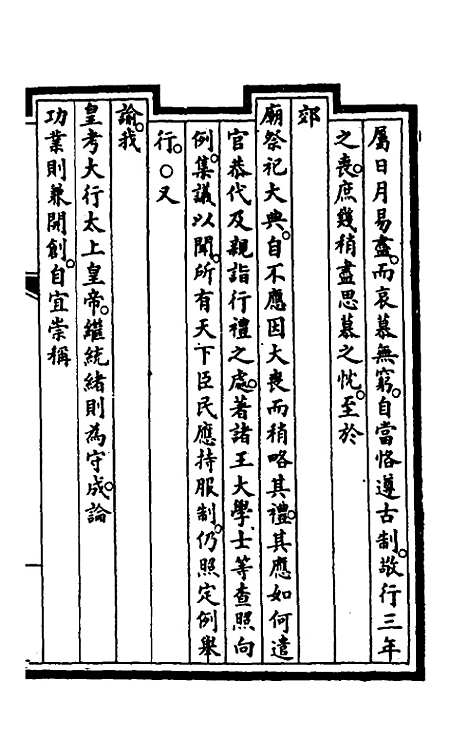 屬日月易盡。而哀慕無窮。自當恪遵古制。敬行三年
之喪。庶幾稍盡思慕之忱。至於
郊
廟祭祀大典。自不應因大喪而稍略其禮。其應如何遣
官恭代及親詣行禮之處。著諸王大學士等查照向
例。集議以聞。所有天下臣民應持服制。仍照定例舉
行。○又
諭。我
皇考大行太上皇帝。繼統緒則為守成。論
功業則兼開創。自宜崇稱